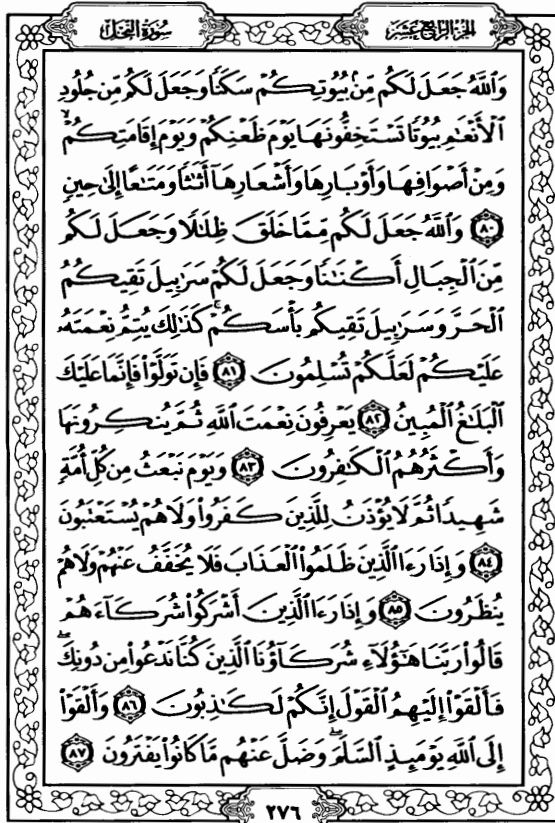 سُورَةُ النَّحْلِ
الجُزْءُ الرَّابِعَ عَشَرَ
وَٱللَّهُ جَعَلَ لَكُم مِّنۢ بُيُوتِكُمْ سَكَنًا وَجَعَلَ لَكُم مِّن جُلُودِ
ٱلْأَنْعَٰمِ بُيُوتًا تَسْتَخِفُّونَهَا يَوْمَ ظَعْنِكُمْ وَيَوْمَ إِقَامَتِكُمْ ۙ
وَمِنْ أَصْوَافِهَا وَأَوْبَارِهَا وَأَشْعَارِهَآ أَثَٰثًا وَمَتَٰعًا إِلَىٰ حِينٍ
﴿٨٠﴾ وَٱللَّهُ جَعَلَ لَكُم مِّمَّا خَلَقَ ظِلَٰلًا وَجَعَلَ لَكُم
مِّنَ ٱلْجِبَالِ أَكْنَٰنًا وَجَعَلَ لَكُمْ سَرَٰبِيلَ تَقِيكُمُ
ٱلْحَرَّ وَسَرَٰبِيلَ تَقِيكُم بَأْسَكُمْ ۚ كَذَٰلِكَ يُتِمُّ نِعْمَتَهُۥ
عَلَيْكُمْ لَعَلَّكُمْ تُسْلِمُونَ ﴿٨١﴾ فَإِن تَوَلَّوْا۟ فَإِنَّمَا عَلَيْكَ
ٱلْبَلَٰغُ ٱلْمُبِينُ ﴿٨٢﴾ يَعْرِفُونَ نِعْمَتَ ٱللَّهِ ثُمَّ يُنكِرُونَهَا
وَأَكْثَرُهُمُ ٱلْكَٰفِرُونَ ﴿٨٣﴾ وَيَوْمَ نَبْعَثُ مِن كُلِّ أُمَّةٍ
شَهِيدًا ثُمَّ لَا يُؤْذَنُ لِلَّذِينَ كَفَرُوا۟ وَلَا هُمْ يُسْتَعْتَبُونَ
﴿٨٤﴾ وَإِذَا رَءَا ٱلَّذِينَ ظَلَمُوا۟ ٱلْعَذَابَ فَلَا يُخَفَّفُ عَنْهُمْ وَلَا هُمْ
يُنظَرُونَ ﴿٨٥﴾ وَإِذَا رَءَا ٱلَّذِينَ أَشْرَكُوا۟ شُرَكَآءَهُمْ
قَالُوا۟ رَبَّنَا هَٰٓؤُلَآءِ شُرَكَآؤُنَا ٱلَّذِينَ كُنَّا نَدْعُوا۟ مِن دُونِكَ ۖ
فَأَلْقَوْا۟ إِلَيْهِمُ ٱلْقَوْلَ إِنَّكُمْ لَكَٰذِبُونَ ﴿٨٦﴾ وَأَلْقَوْا۟
إِلَى ٱللَّهِ يَوْمَئِذٍ ٱلسَّلَمَ ۖ وَضَلَّ عَنْهُم مَّا كَانُوا۟ يَفْتَرُونَ ﴿٨٧﴾
٢٧٦